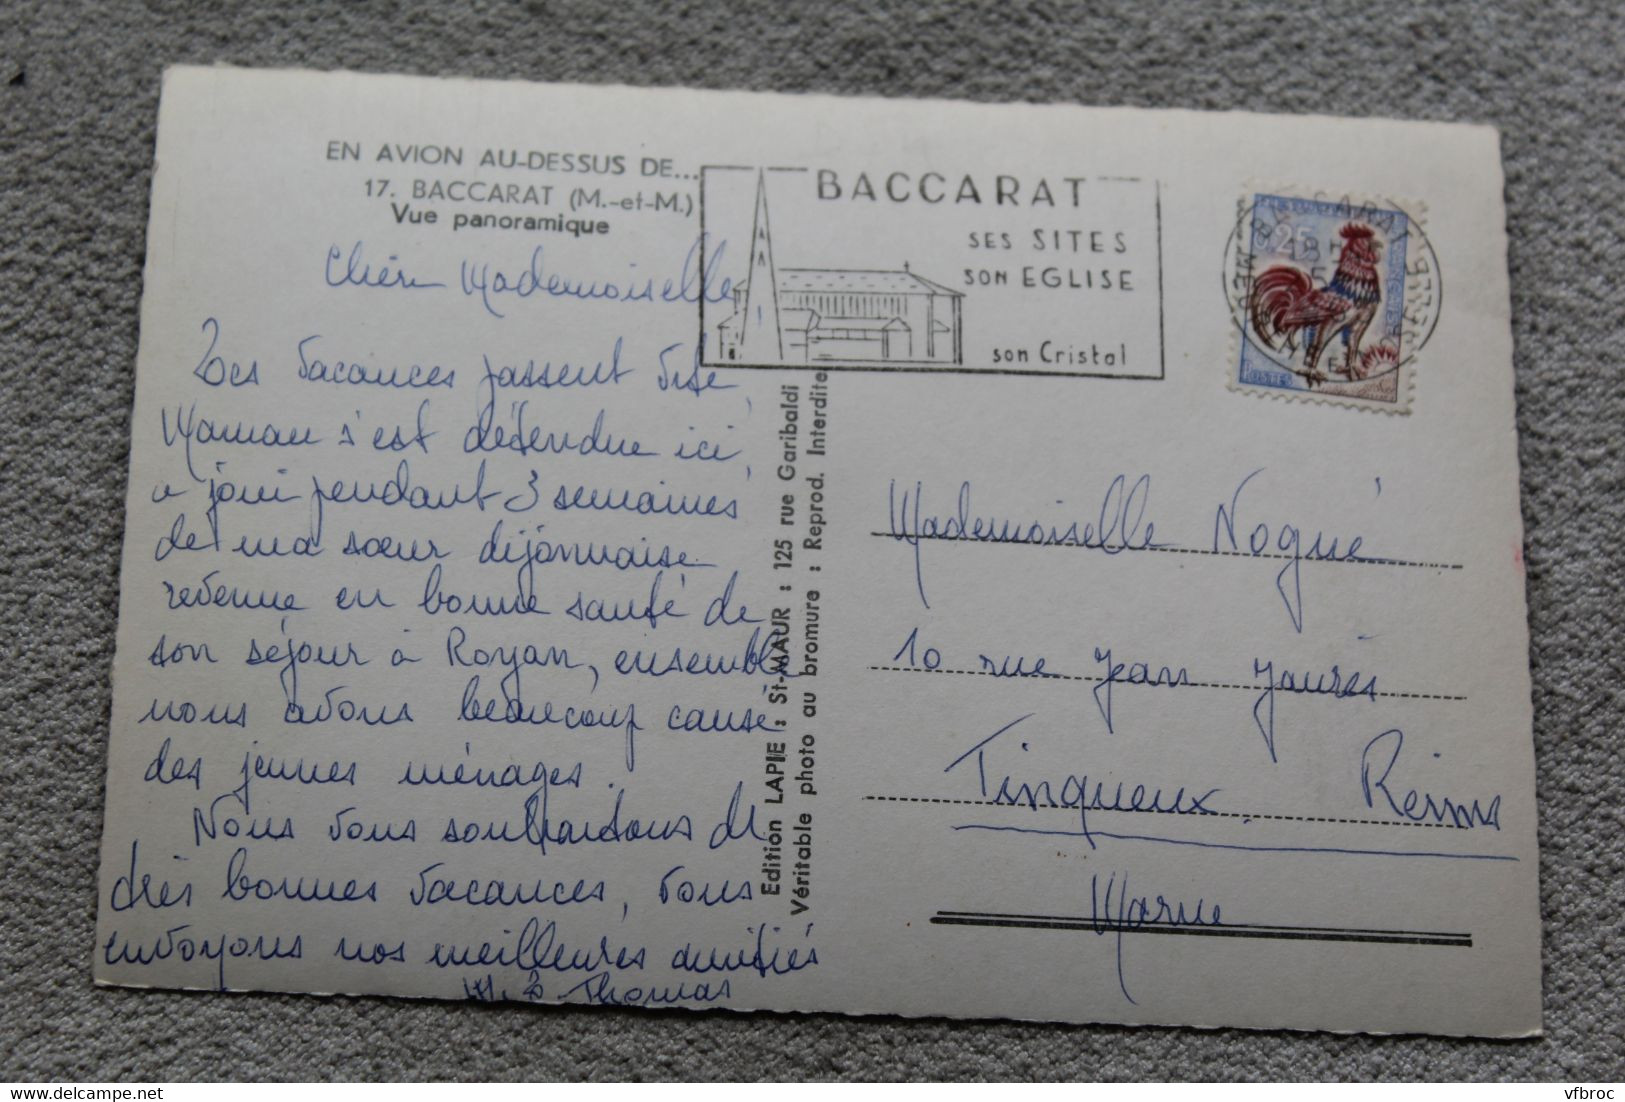 EN AVION AU-DESSUS DE...
17. BACCARAT (M.-et-M.)
Vue panoramique
Chère Mademoiselle
Les vacances passent vite,
Maman s'est détendue ici,
a joui pendant 3 semaines
de ma sœur dijonnaise
revenue en bonne santé de
son séjour à Royan, ensemble
nous avons beaucoup causé
des jeunes ménages.
Nous vous souhaitons de
très bonnes vacances, vous
envoyons nos meilleures amitiés
Thomas
Edition LAPIE : St-MAUR : 125 rue Garibaldi
Véritable photo au bromure : Reprod. Interdite
BACCARAT
SES SITES
SON EGLISE
son Cristal
0,25
18 H
POSTES
Mademoiselle Nogué
10 rue Jean Jaurès
Tinqueux. Reims
Marne
vfbroc